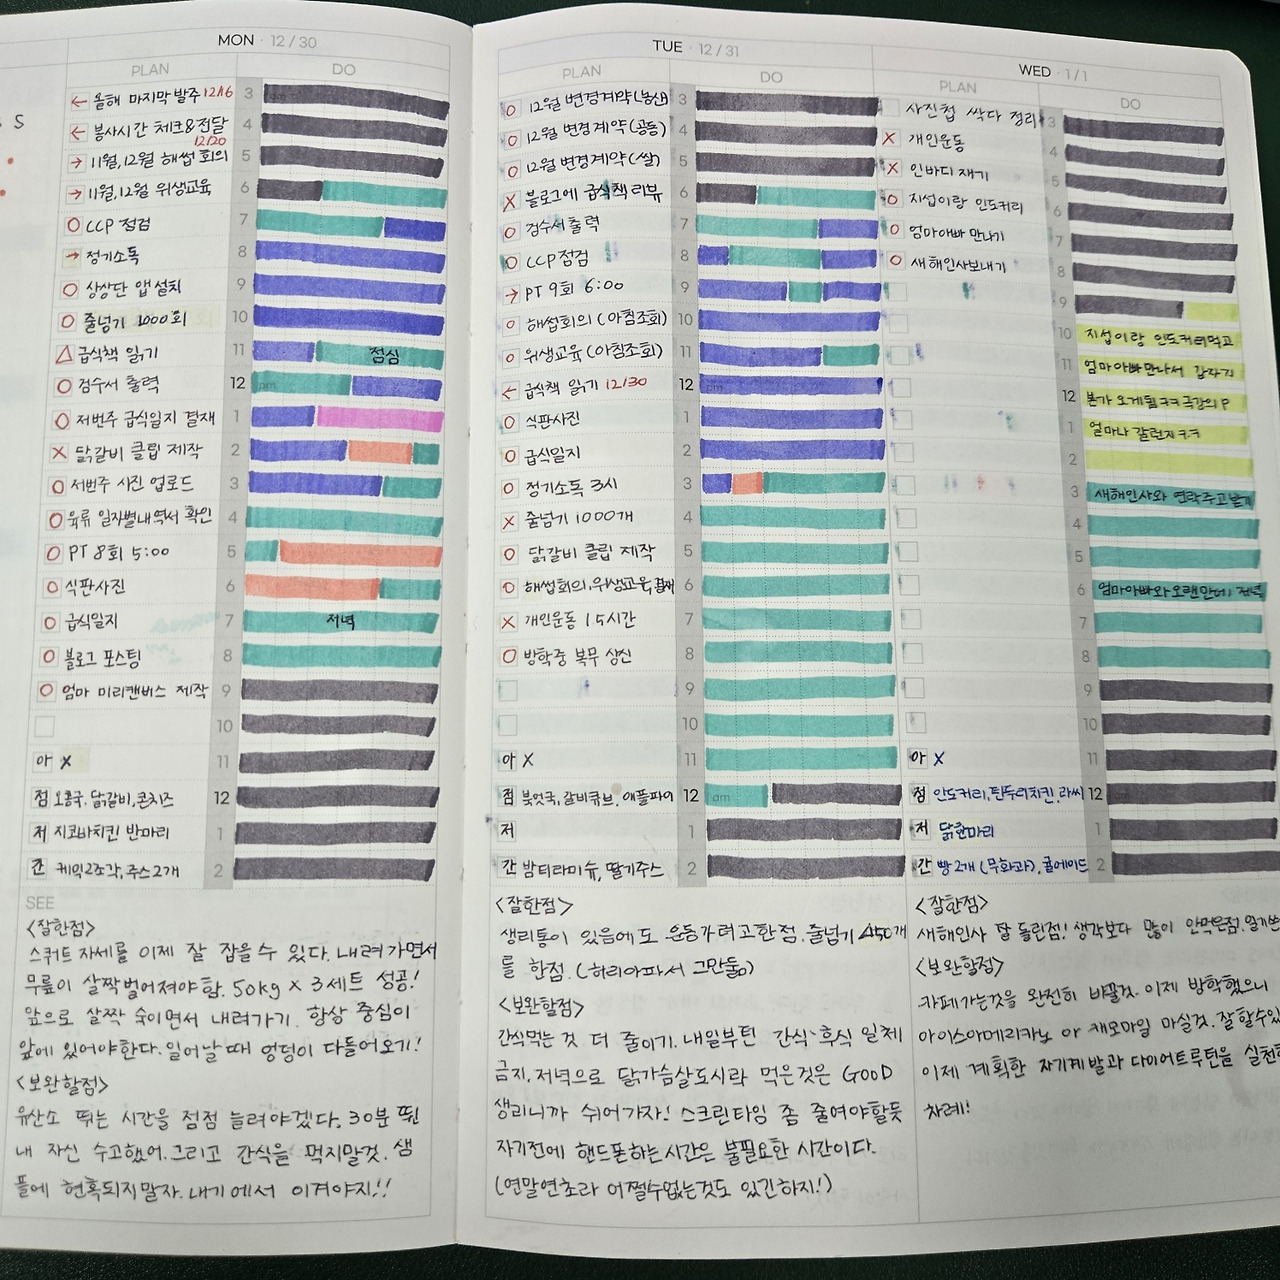 S
MON · 12/30
PLAN
DO
← 올해 마지막 발주 12/16
← 봉사시간 체크&전달 12/20
→ 11월, 12월 해썹 회의
→ 11월, 12월 위생교육
CCP 점검
→ 정기소독
상상단 앱 설치
줄넘기 1000회
△ 급식책 읽기
검수서 출력
저번주 급식일지 결재
X 닭갈비 클립 제작
저번주 사진 업로드
육류 일자별내역서 확인
PT 8회 5:00
식판사진
급식일지
블로그 포스팅
엄마 미리캔버스 제작
아 X
점 오콩국, 닭갈비, 콘치즈
저 지코바치킨 반마리
간 케익2조각, 주스2개
3
4
5
6
7
8
9
10
11 점심
12 pm
1
2
3
4
5
6
7 저녁
8
9
10
11
12 am
1
2
SEE
<잘한점>
스쿼트 자세를 이제 잘 잡을수 있다. 내려가면서
무릎이 살짝벌어져야함. 50kg X 3세트 성공!
앞으로 살짝 숙이면서 내려가기. 항상 중심이
앞에 있어야한다. 일어날때 엉덩이 다들어오기!
<보완할점>
유산소 뛰는 시간을 점점 늘려야겠다. 30분 뛴
내 자신 수고했어. 그리고 간식을 먹지말것. 샘
플에 현혹되지말자. 내기에서 이겨야지!!
TUE · 12/31
PLAN
DO
12월 변경계약(농산)
12월 변경계약(공동)
12월 변경계약(쌀)
X 블로그에 급식책 리뷰
검수서 출력
CCP 점검
→ PT 9회 6:00
해썹회의 (아침조회)
위생교육 (아침조회)
← 급식책 읽기 12/30
식판사진
급식일지
정기소독 3시
X 줄넘기 1000개
닭갈비 클립 제작
해썹회의, 위생교육, 결재
X 개인운동 1.5시간
방학중 복무 상신
아 X
점 북엇국, 갈비큐브, 애플파이
저
간 밤티라미슈, 딸기주스
3
4
5
6
7
8
9
10
11
12 pm
1
2
3
4
5
6
7
8
9
10
11
12 am
1
2
<잘한점>
생리통이 있음에도 운동가려고한점. 줄넘기 450개
를 한점. (허리아파서 그만둠)
<보완할점>
간식먹는 것 더 줄이기. 내일부턴 간식·후식 일체
금지. 저녁으로 닭가슴살도시락 먹은것은 GOOD
생리니까 쉬어가자! 스크린타임 좀 줄여야할듯
자기전에 핸드폰하는시간은 불필요한 시간이다.
(연말연초라 어쩔수없는것도 있긴하지!)
WED · 1/1
PLAN
DO
사진첩 싹다 정리
X 개인운동
X 인바디 재기
지섭이랑 인도커리
엄마아빠 만나기
새해인사보내기
아 X
점 인도커리, 탄두리치킨, 라씨
저 닭한마리
간 빵2개 (무화과), 귤에이드
3
4
5
6
7
8
9
10 지섭이랑 인도커리먹고
11 엄마아빠만나서 갑자기
12 본가 오게됨ㅋㅋ 극강의P
1 얼마나 잘런지ㅋㅋ
2
3 새해인사와 연락주고받기
4
5
6 엄마아빠와오랜만에 저녁
7
8
9
10
11
12
1
2
<잘한점>
새해인사 말 돌린점! 생각보다 많이 안먹은점.
<보완할점>
카페가는것을 완전히 바꿀것. 이제 방학했으니
아이스아메리카노 or 캐모마일 마실것. 잘할수있
이제 계획한 자기계발과 다이어트루틴을 실천
차례!